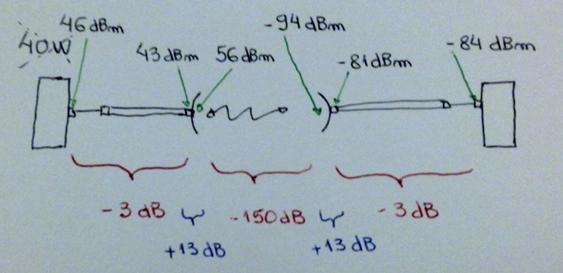 46 dBm
-94 dBm
40W
43 dBm
56 dBm
-81 dBm
-84 dBm
-3 dB
-150 dB
-3 dB
+13 dB
+13 dB